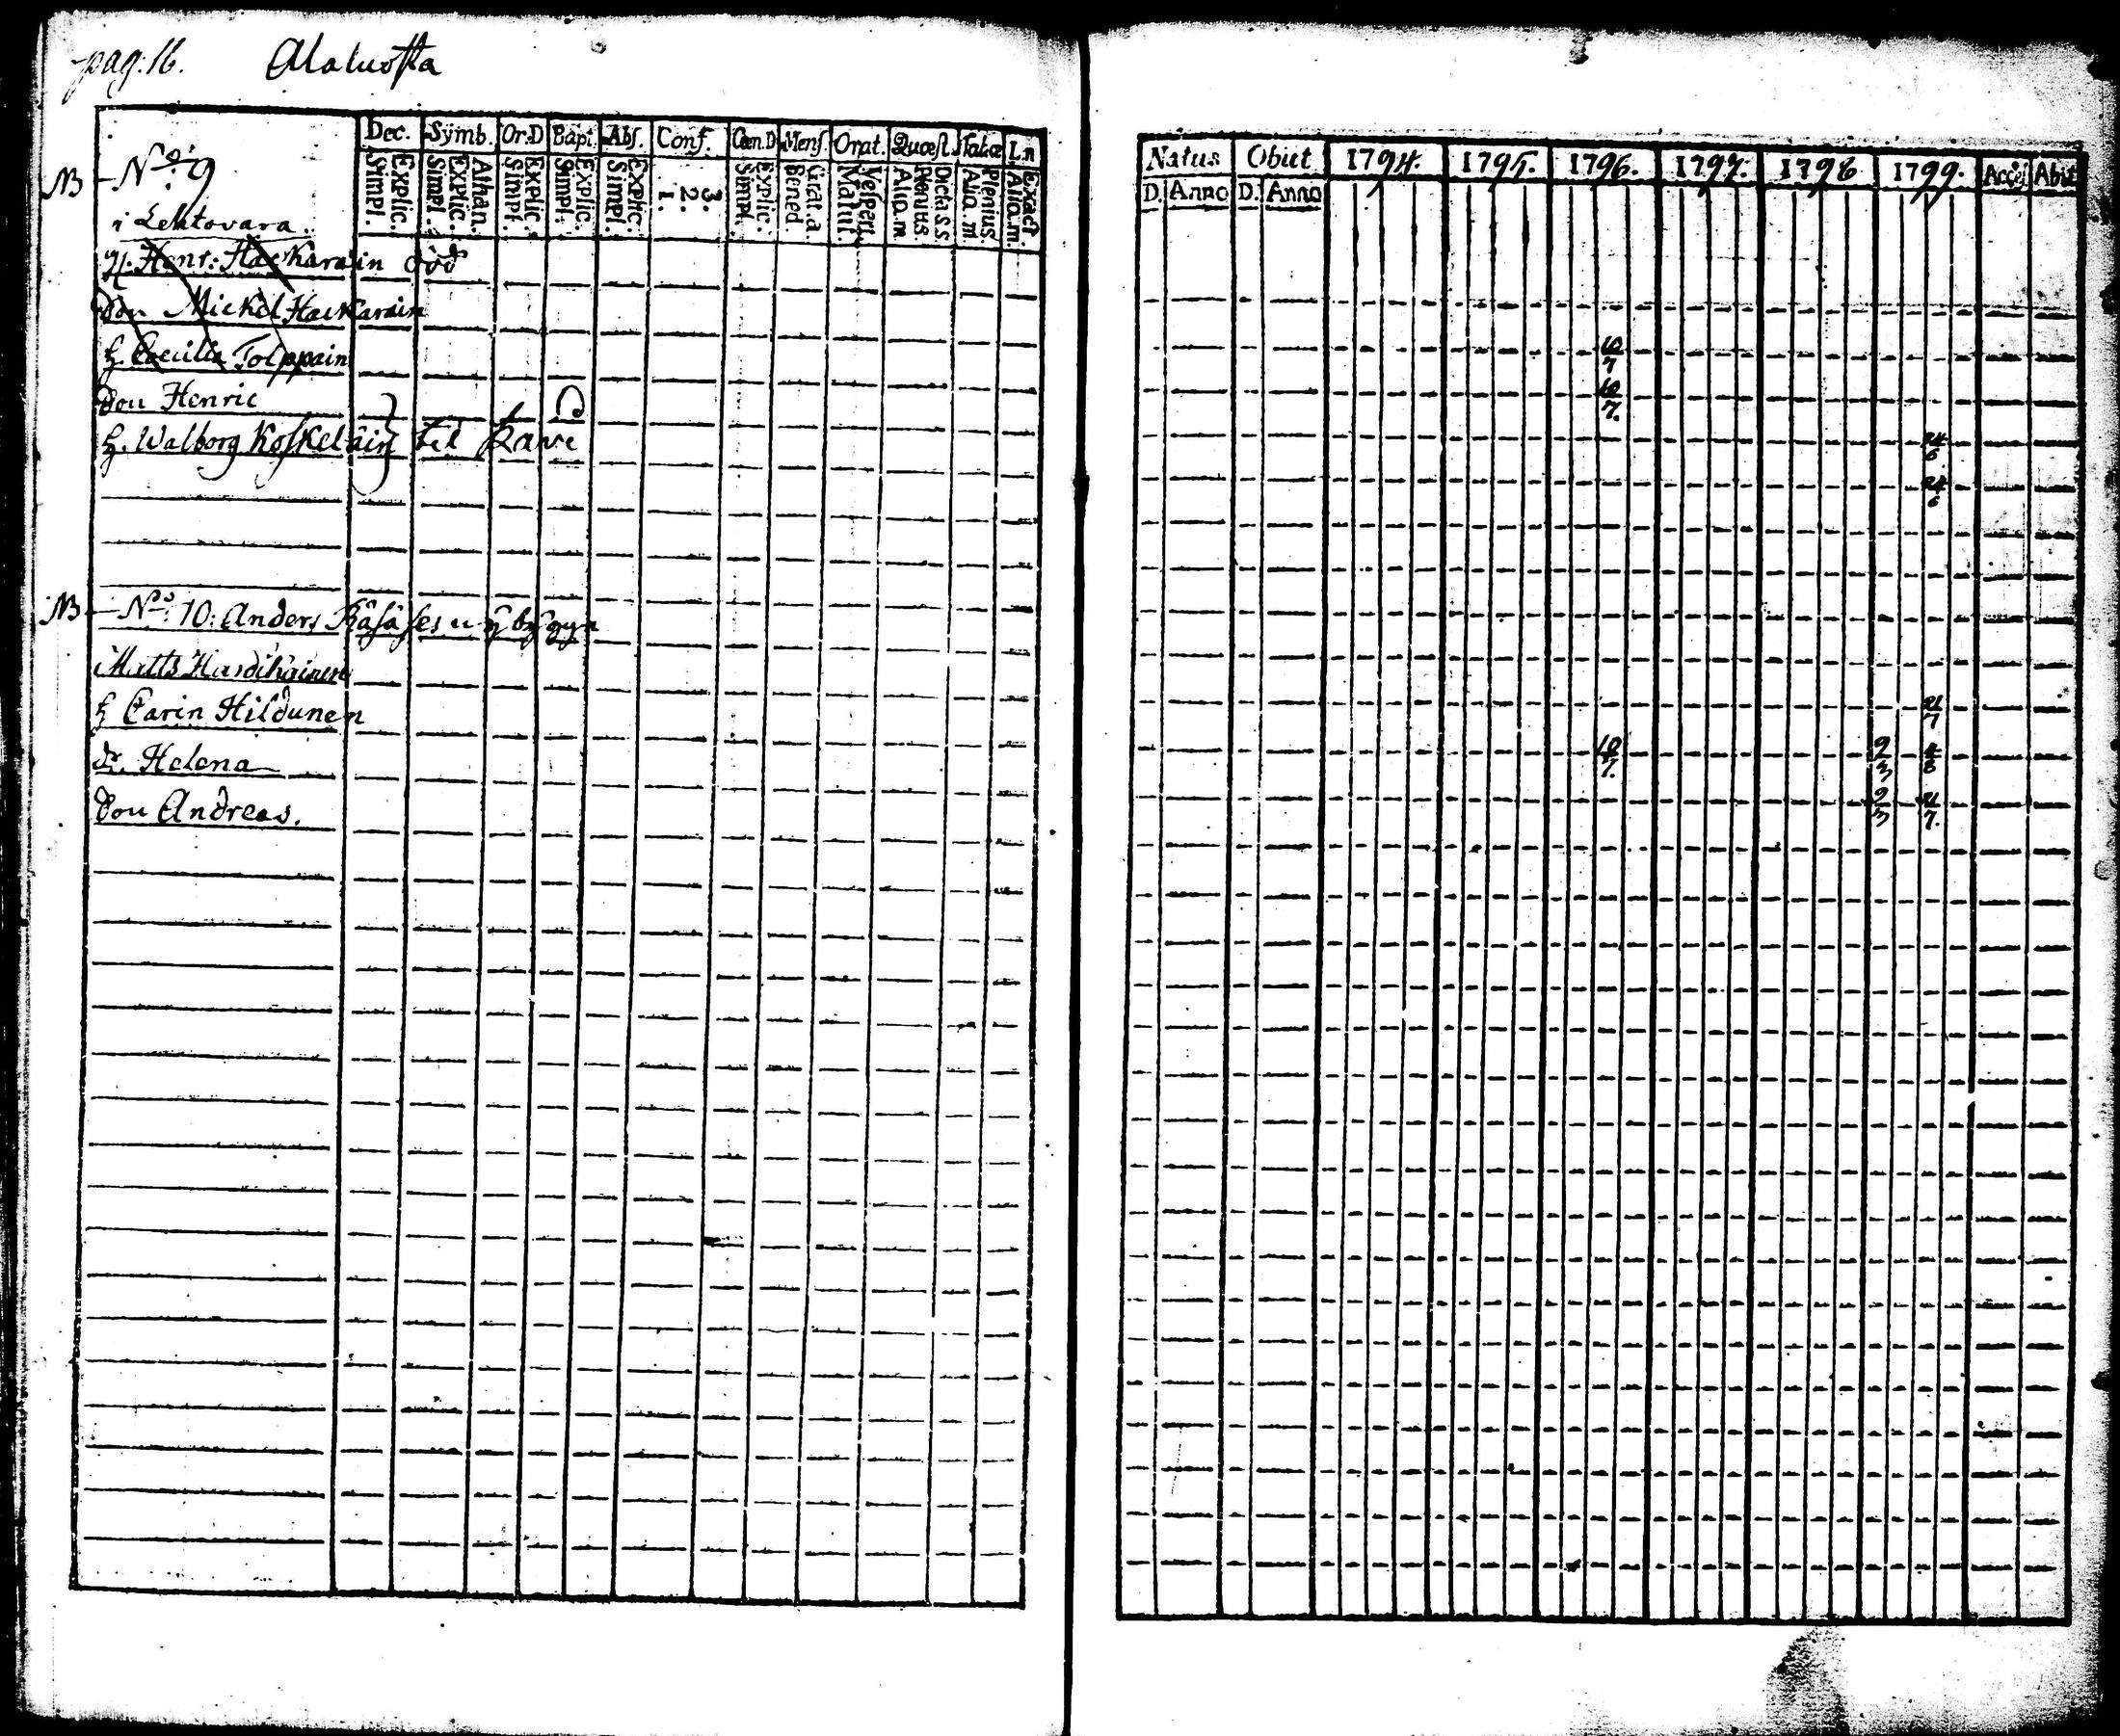 pag: 16. Alaluosta
Dec. Symb. Or.D Bapt. Abs. Conf. Cœn.D Mens. Orat. Quæst. Tabæ L.n
Simpl. Explic. Simpl. Explic. Athan. Simpl. Explic. Simpl. Explic. Simpl. Explic. 1. 2. 3. Simpl. Explic. Bened. Grat.a. Matut. Vespert. Aliq.m Plenius. Dicta S.S. Aliq.m Plenius. Aliq.m. Exact.
NB N:o 9
i Lehtovara.
g. Henr: Häckäräin död
Son Mickel Häckäräin
h. Cæcilia Tolppain
Son Henric
h. Walborg Koskeläin til
NB N:o 10: Anders Räsäses nybygge
Matts Hardikainen
h Carin Hildunen
d. Helena
Son Andreas.
Natus Obiit 1794. 1795. 1796. 1797. 1798 1799. Acceſ Abiit
D. Anno D. Anno
10
7
10
7.
24
6
24
6
21
7
10 2 4
7. 3 8
2 21
3 7.